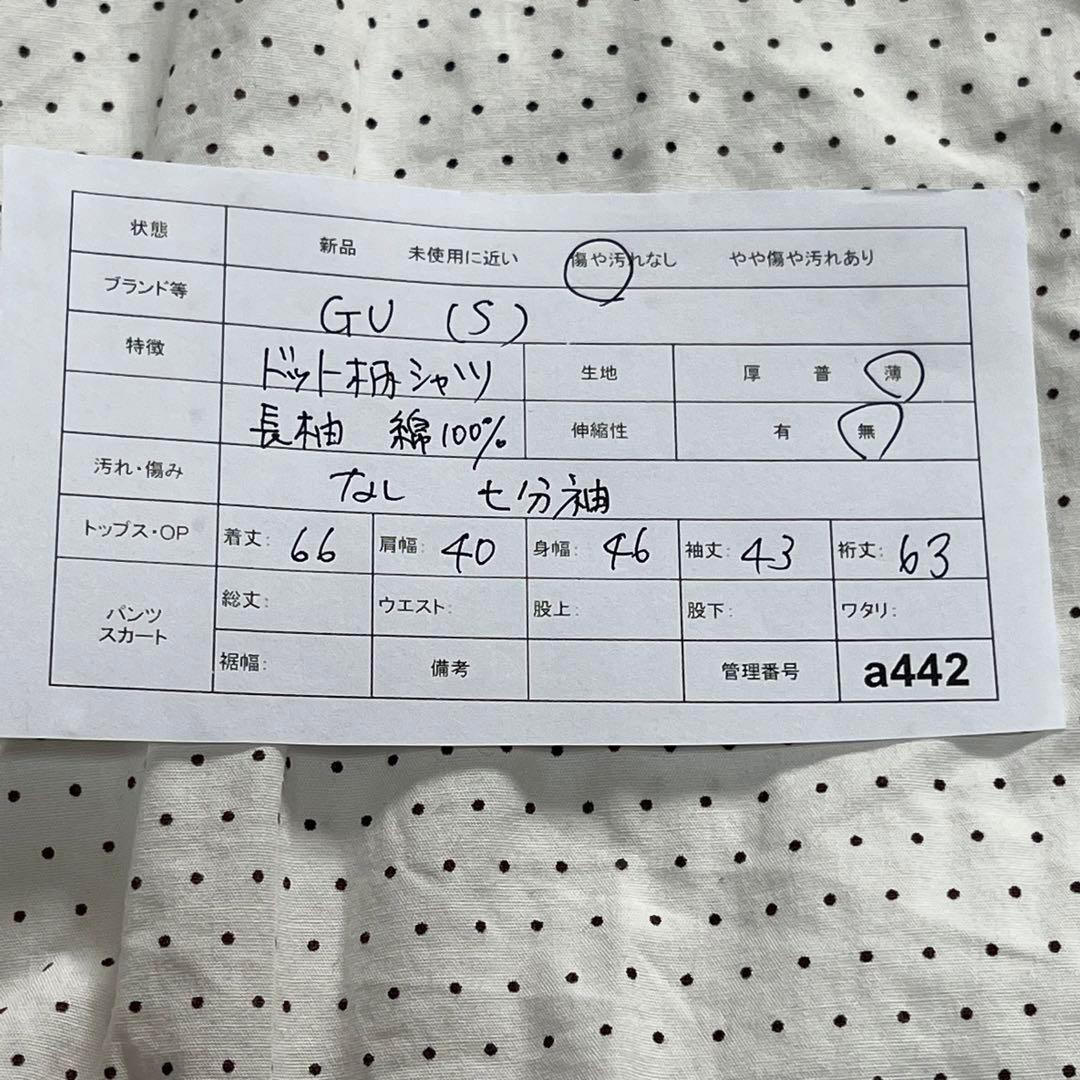 状態 新品 未使用に近い 傷や汚れなし やや傷や汚れあり
ブランド等 GU (S)
特徴 ドット柄シャツ 生地 厚 普 薄
長袖 綿100% 伸縮性 有 無
汚れ・傷み なし 七分袖
トップス・OP 着丈: 66 肩幅: 40 身幅: 46 袖丈: 43 裄丈: 63
パンツ スカート 総丈: ウエスト: 股上: 股下: ワタリ:
裾幅: 備考 管理番号 a442